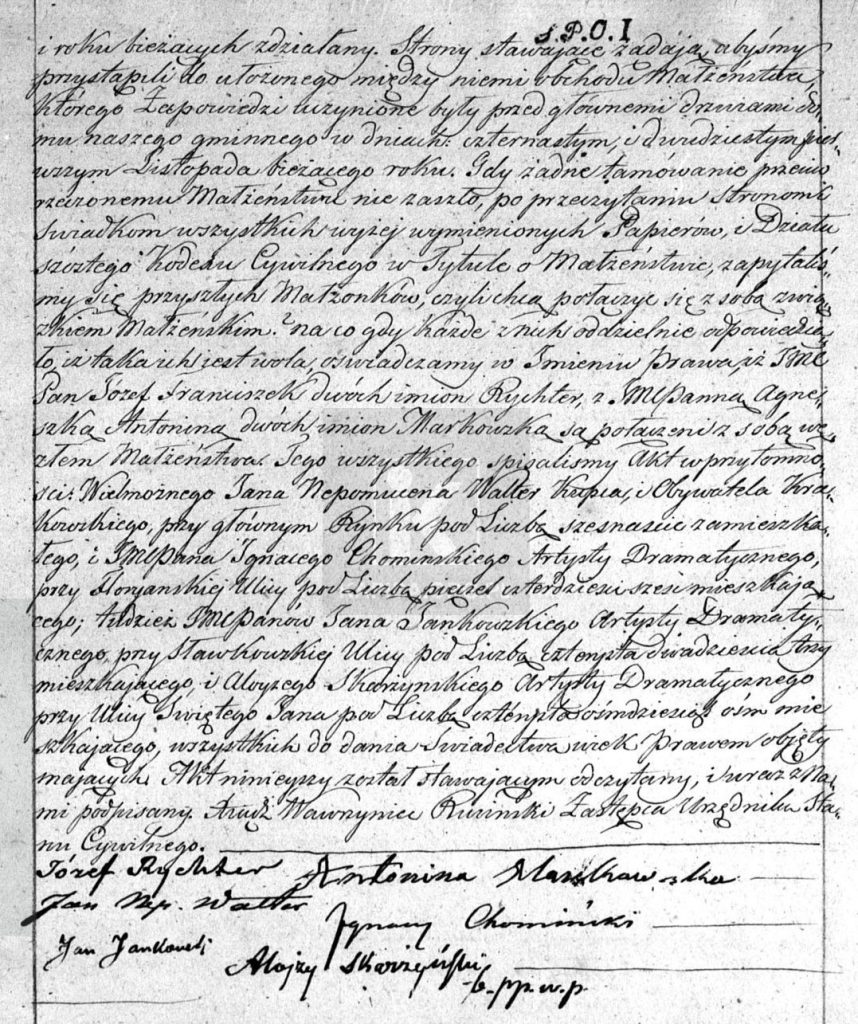 S.P.O.I
i roku bieżących zdziałany. Strony stawające żądają, abyśmy
przystąpili do ułożonego między niemi obchodu Małżeństwa,
którego Zapowiedzi uczynione były przed głównemi drzwiami do=
mu naszego gminnego w dniach: czternastym, i dwudziestym pier=
wszym Listopada bieżącego roku. Gdy żadne tamowanie przeciw
rzeczonemu Małżeństwu nie zaszło, po przeczytaniu Stronom i
świadkom wszystkich wyżej wymienionych Papierów, i Działu
szóstego Kodexu Cywilnego w Tytule o Małżeństwie, zapytaliś=
my się przyszłych Małżonków, czyli chcą połączyć się z sobą zwią=
zkiem Małżeńskim? na co gdy każde z nich oddzielnie odpowiedzia=
ło, iż taka ich jest wola, oświadczamy w Imieniu Prawa, iż JMC
Pan Józef Franciszek dwóch imion Rychter, z JMCPanną Agnie=
szką Antoniną dwóch imion Markowską są połączeni z sobą wę=
złem Małżeństwa. Tego wszystkiego spisaliśmy Akt w przytomno=
ści: Wielmożnego Jana Nepomucena Walter Kupca, i Obywatela Kra=
kowskiego, przy głównym Rynku pod Liczbą szesnaście zamieszka=
łego, i JMCPana Ignacego Chomińskiego Artysty Dramatycznego,
przy Floryanskiej Ulicy pod Liczbą pięćset czterdzieści sześć mieszkają=
cego; tudzież JMCPanów Jana Jankowskiego Artysty Dramaty=
cznego, przy Sławkowskiej Ulicy pod Liczbą czterysta dwadzieścia trzy
mieszkającego, i Aloyzego Skarzynskiego Artysty Dramatycznego
przy Ulicy Świętego Jana pod Liczbą czterysta ośmdziesiąt ośm mie
szkającego, wszystkich do dania świadectwa wiek Prawem objęty
mających. Akt niniejszy został stawającym odczytany, i wraz z Na=
mi podpisany. Wawrzyniec Zastępca Urzędnika Sta=
nu Cywilnego.
Józef Rychter Antonina Markowska
Jan Nep. Walter
Ignacy Chomiński
Jan Jankowski
Alojzy Skarzyński